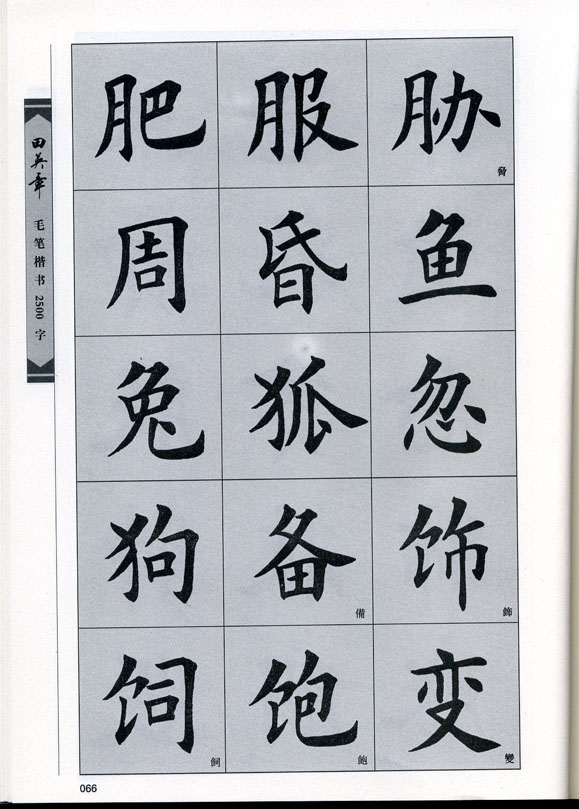 田英章 毛笔楷书 2500 字
肥 服 胁 脅
周 昏 鱼
兔 狐 忽
狗 备 備 饰 飾
饲 飼 饱 飽 变 變
066